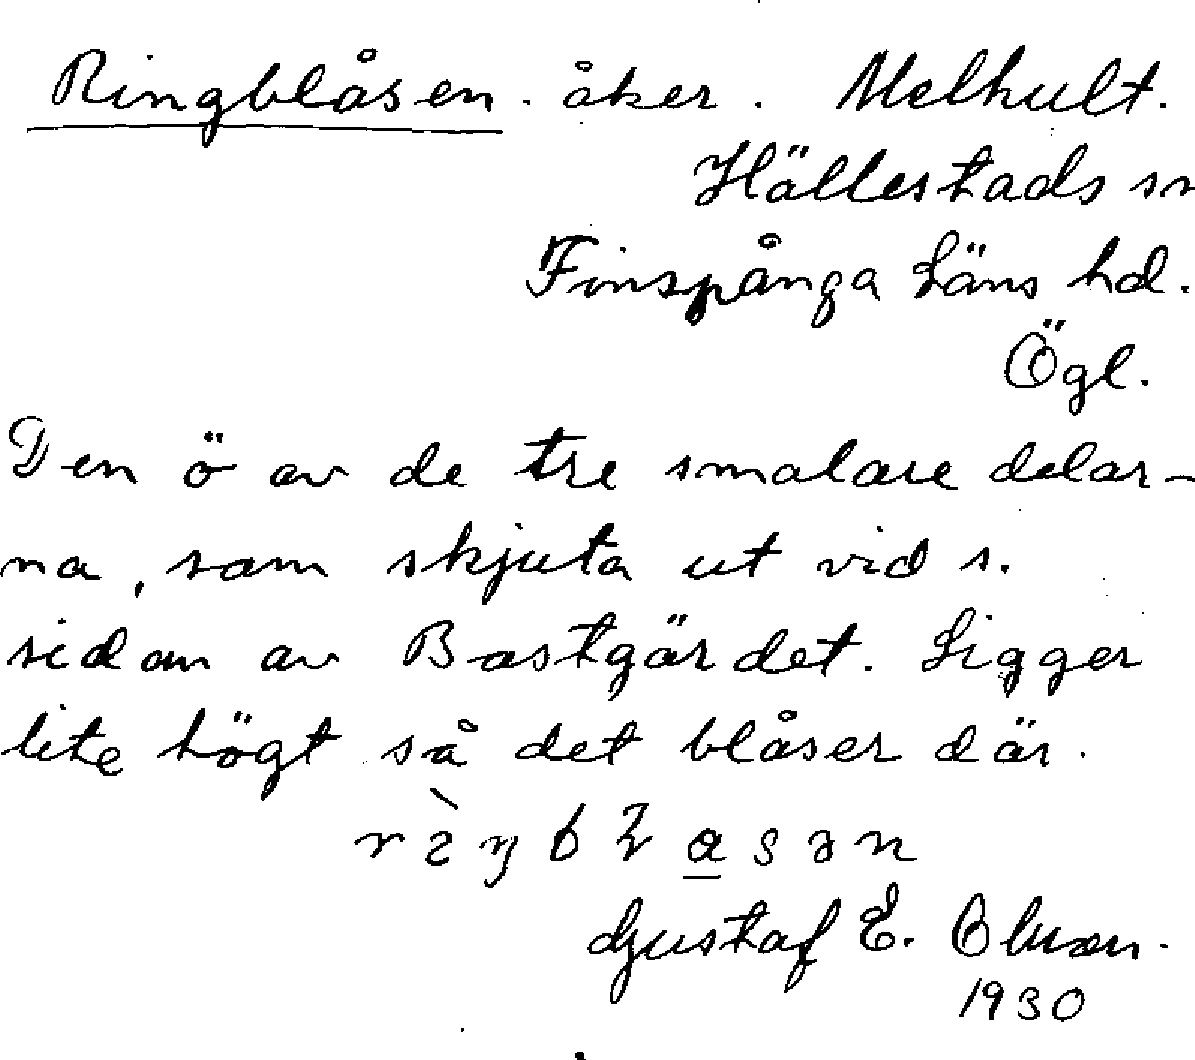 Ringblåsen. åker. Melhult.
Hällestads sn
Finspånga Läns hd.
Ögl.
Den ö av de tre smalare delar-
na, som skjuta ut vid s.
sidan av Bastgärdet. Ligger
lite högt så det blåser där.
Gustaf E.
1930